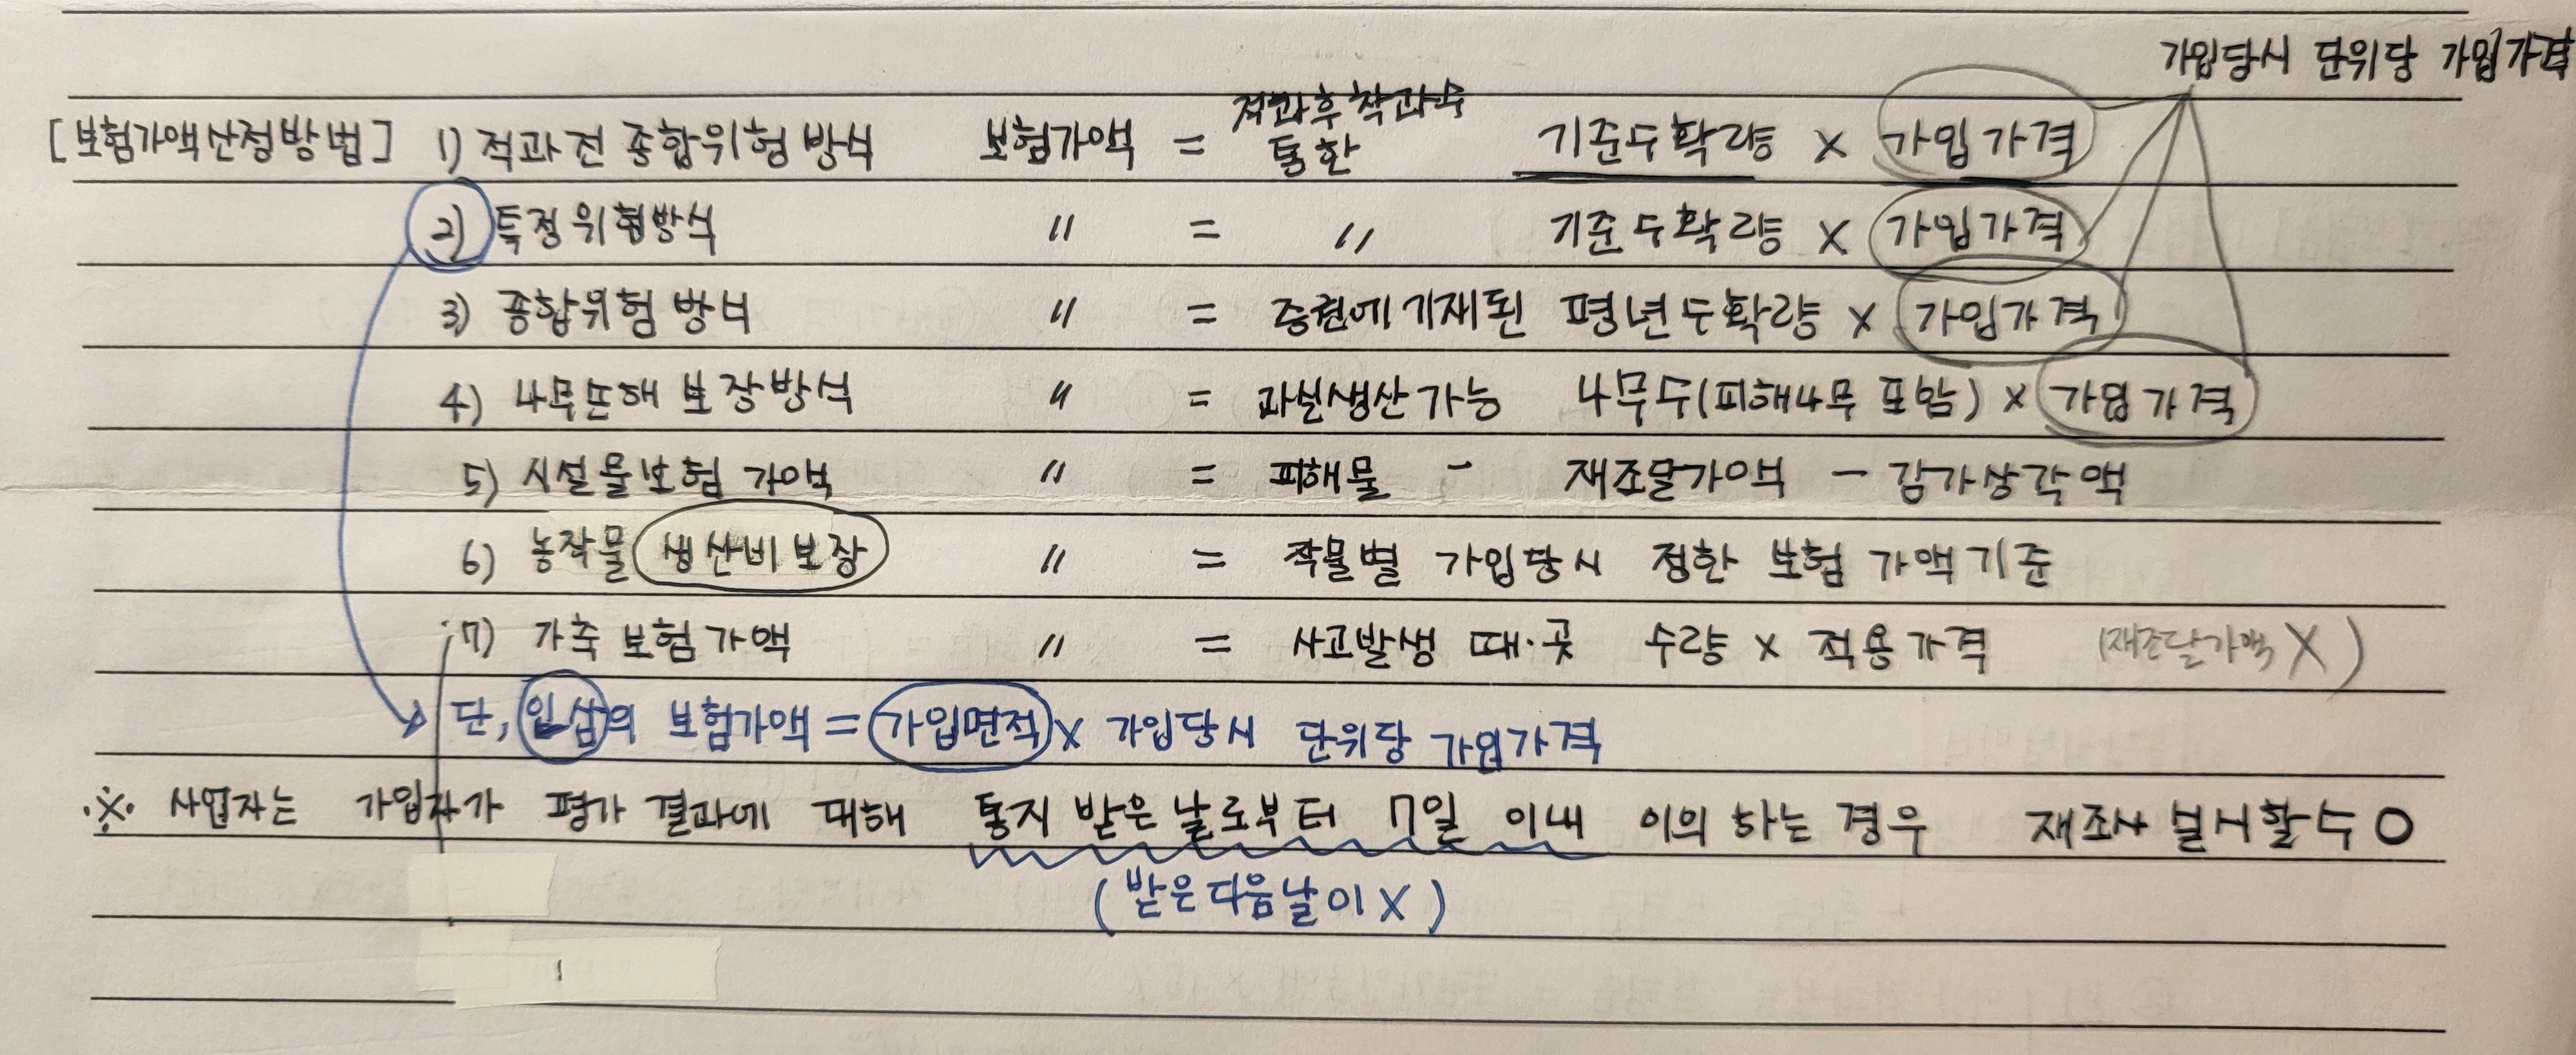 가입당시 단위당 가입가격
[보험가액산정방법] 1) 적과전 종합위험방식 보험가액 = 적과후착과수 통한 기준수확량 × 가입가격
2) 특정위험방식 〃 = 〃 기준수확량 × 가입가격
3) 종합위험방식 〃 = 증권에기재된 평년수확량 × 가입가격
4) 나무손해보장방식 〃 = 과실생산가능 나무수(피해나무 포함) × 가입가격
5) 시설물보험 가액 〃 = 피해물 - 재조달가액 - 감가상각액
6) 농작물 생산비보장 〃 = 작물별 가입당시 정한 보험 가액기준
7) 가축보험가액 〃 = 사고발생 때·곳 수량 × 적용가격 (재조달가액 X)
단, 인삼의 보험가액 = 가입면적 × 가입당시 단위당 가입가격
※ 사업자는 가입자가 평가 결과에 대해 통지 받은 날로부터 7일 이내 이의 하는 경우 재조사 실시할 수 O
(받은다음날이 X)